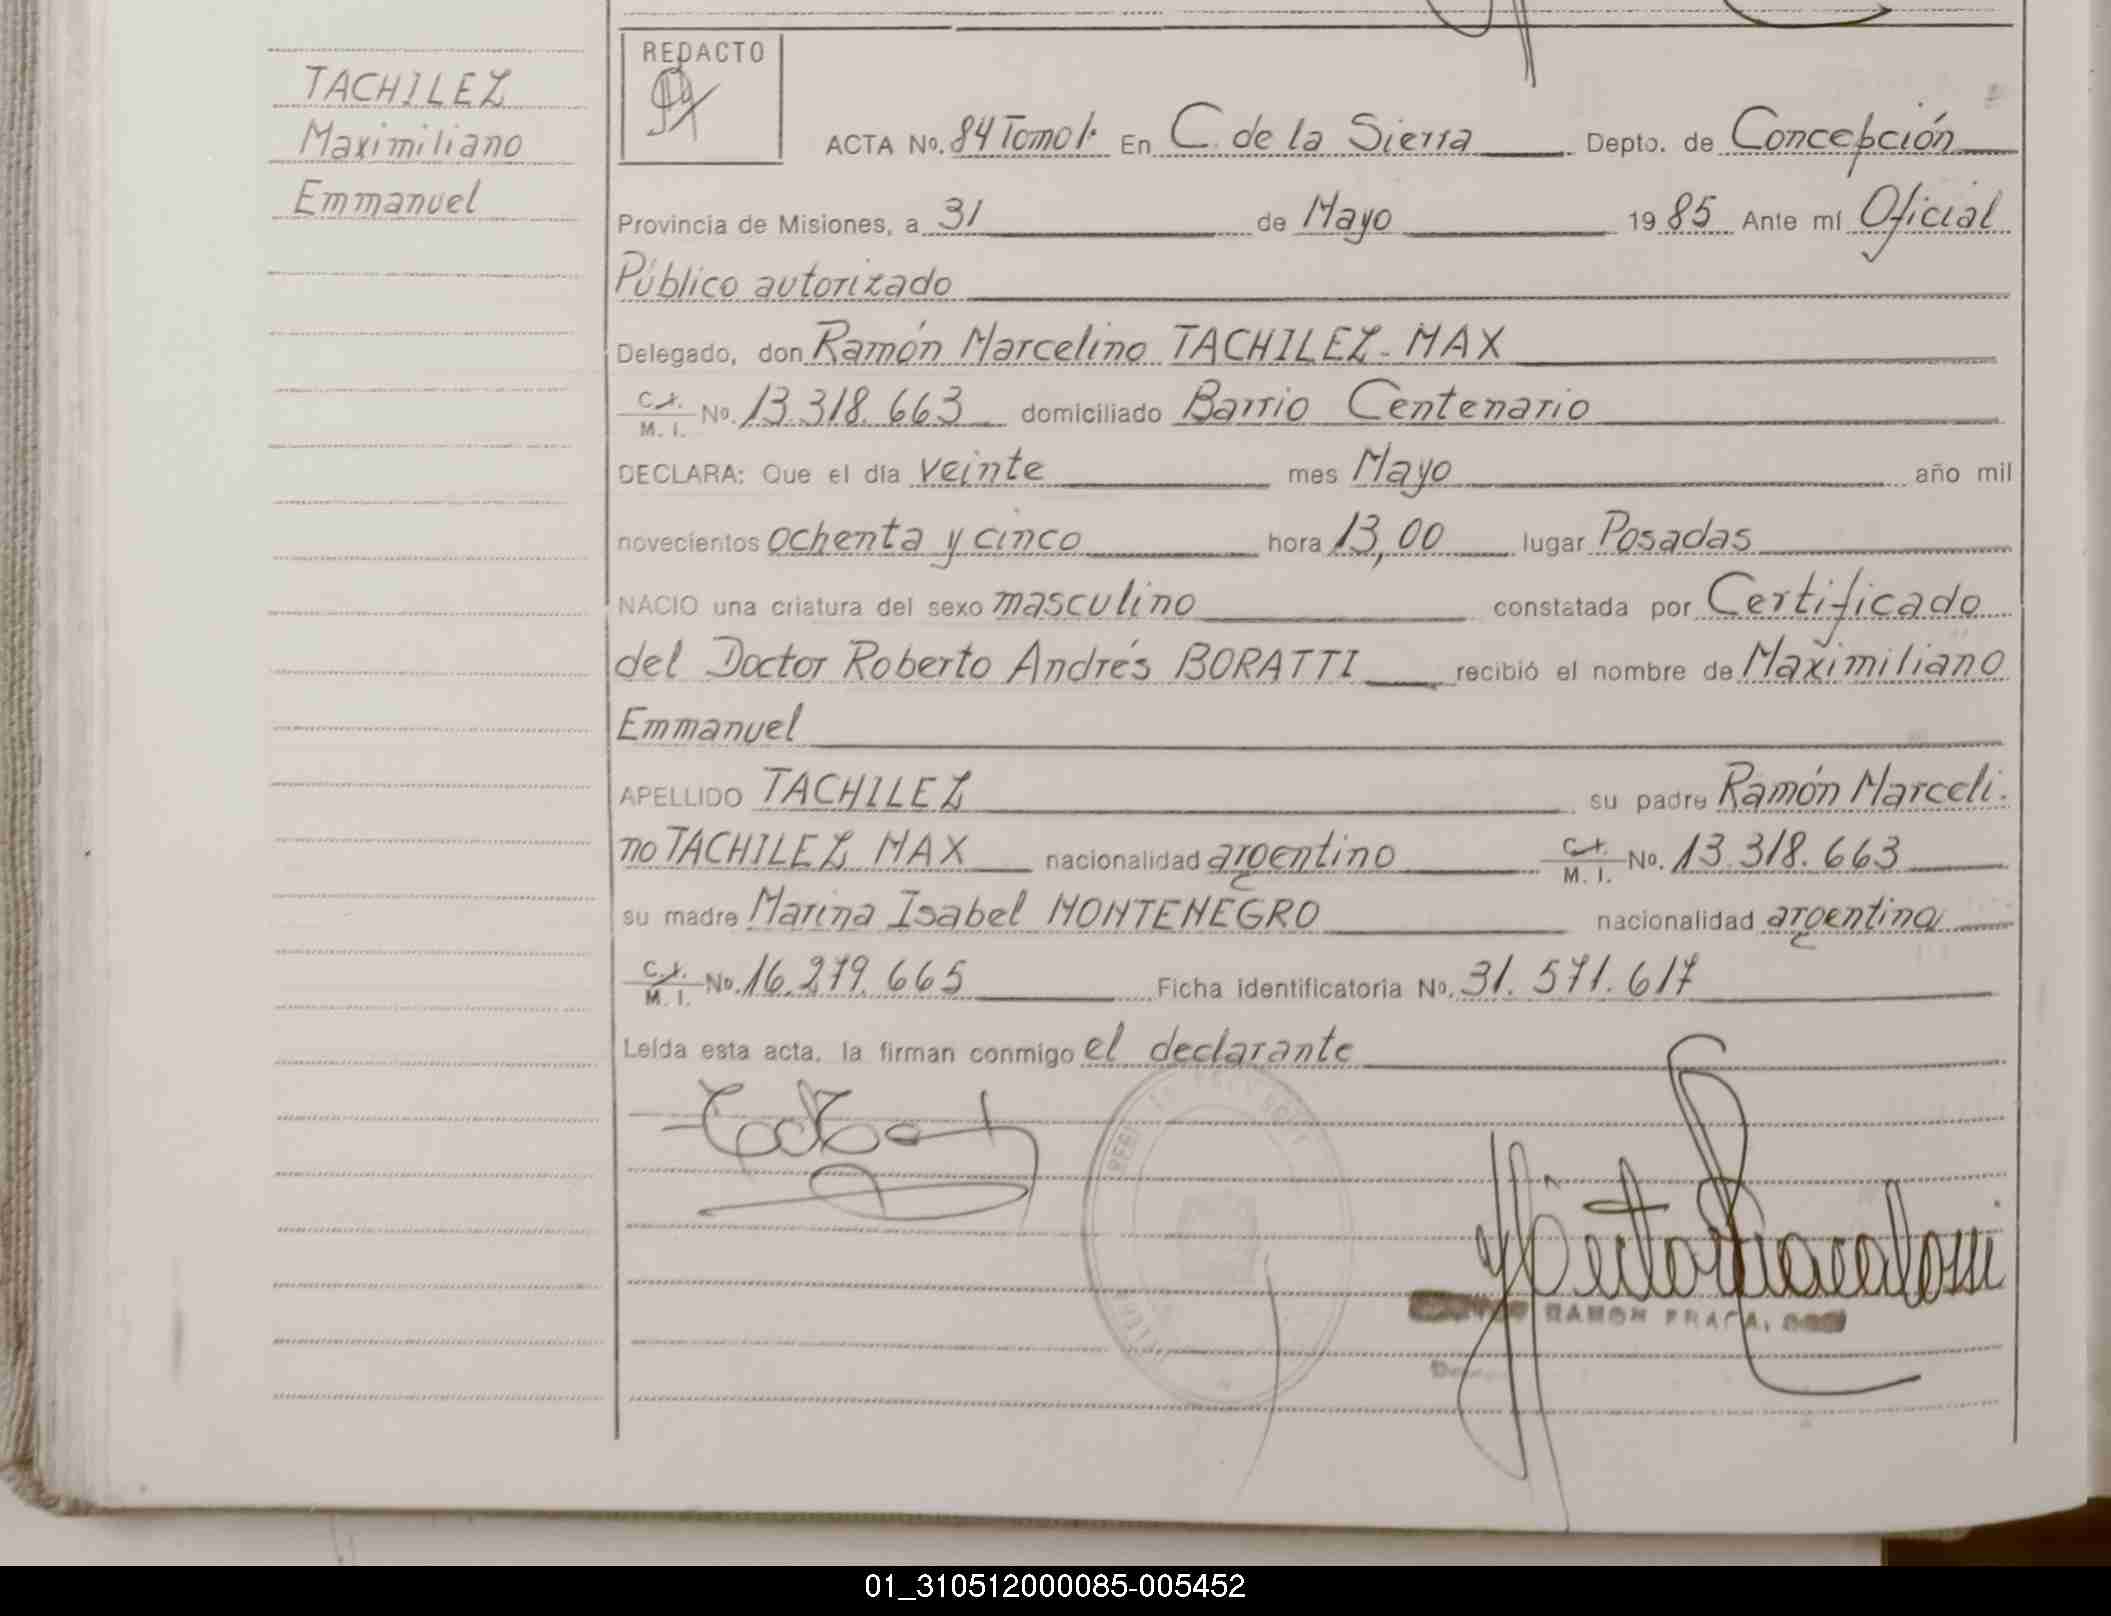 TACHILEZ
Maximiliano
Emmanuel
REDACTO
ACTA No. 84 Tomo 1· En C. de la Sierra Depto. de Concepción
Provincia de Misiones, a 31 de Mayo 1985 Ante mí Oficial
Público autorizado
Delegado, don Ramón Marcelino TACHILEZ MAX
C.I. M. I. No. 13.318.663 domiciliado Barrio Centenario
DECLARA: Que el día veinte mes Mayo año mil
novecientos ochenta y cinco hora 13,00 lugar Posadas
NACIO una criatura del sexo masculino constatada por Certificado
del Doctor Roberto Andrés BORATTI recibió el nombre de Maximiliano
Emmanuel
APELLIDO TACHILEZ su padre Ramón Marceli-
no TACHILEZ MAX nacionalidad argentino C.I. M. I. No. 13.318.663
su madre Marina Isabel MONTENEGRO nacionalidad argentina
C.I. M. I. No. 16.279.665 Ficha identificatoria No. 31.571.617
Leída esta acta, la firman conmigo el declarante
RAMON
01_310512000085-005452